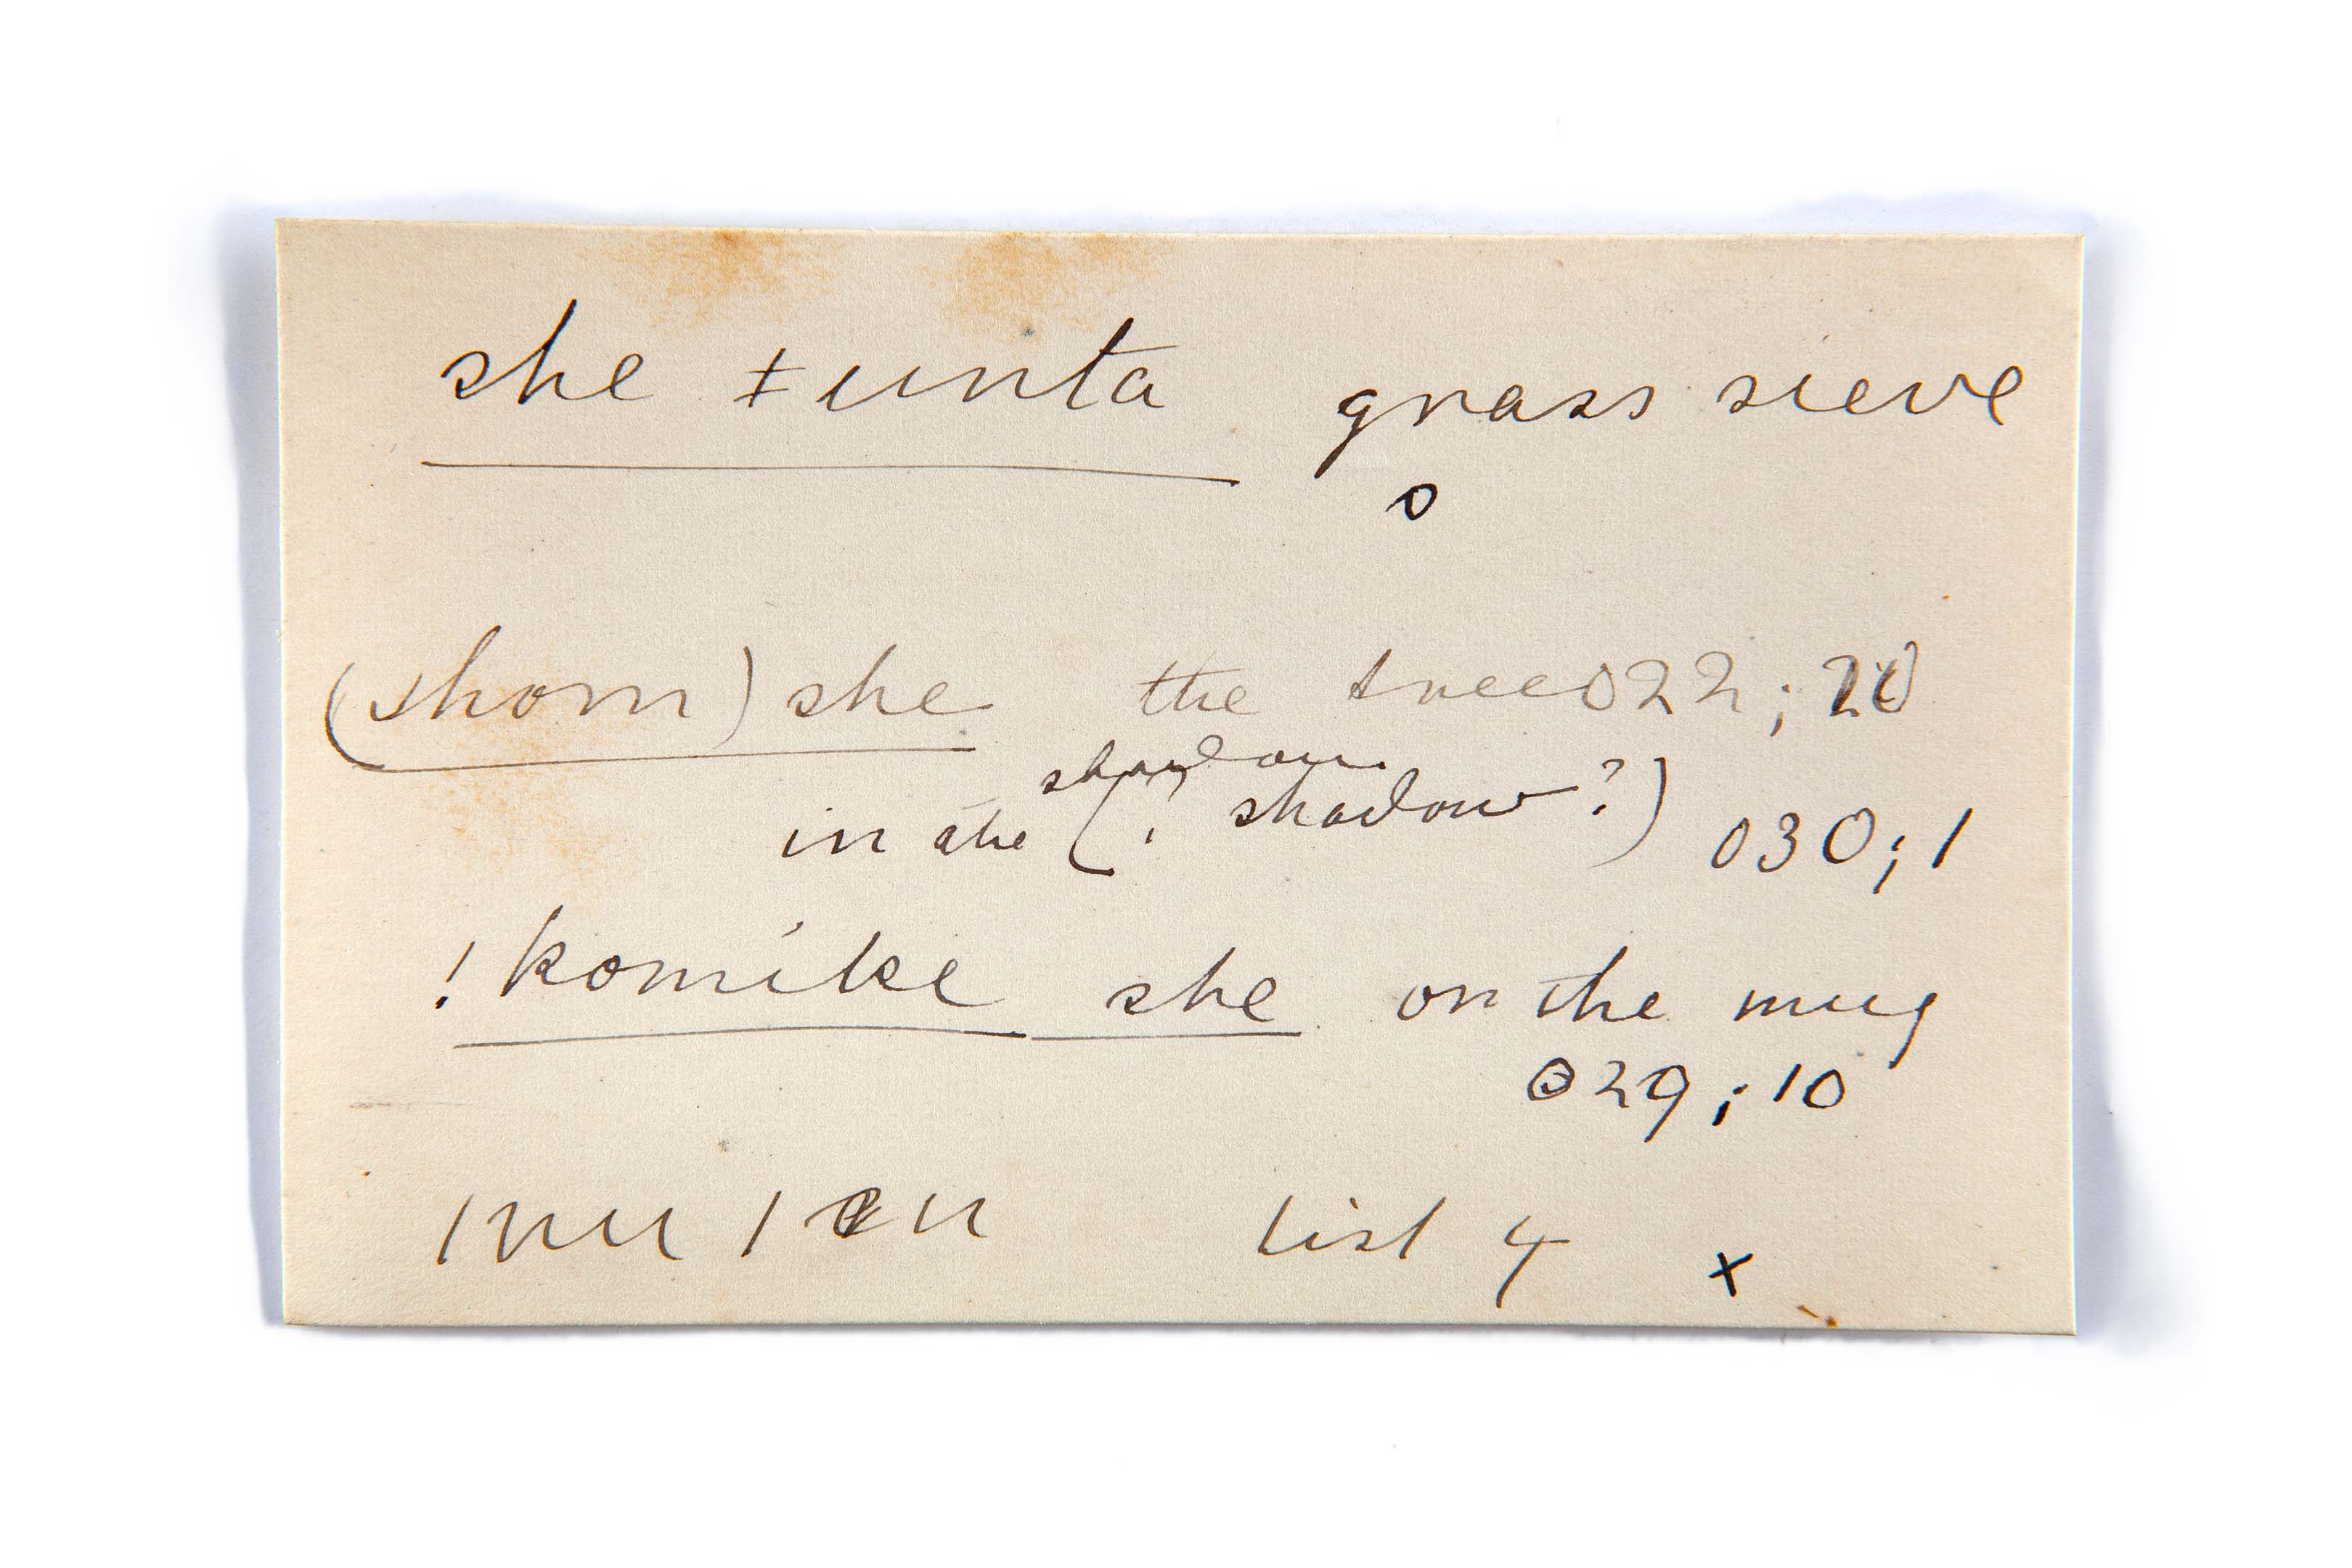 she ǂunta grass sieve
o
(shom) she the tree 022; 20
shadow
in the (? shadow?) 030; 1
!komike she on the mug
029; 10
list 4 x